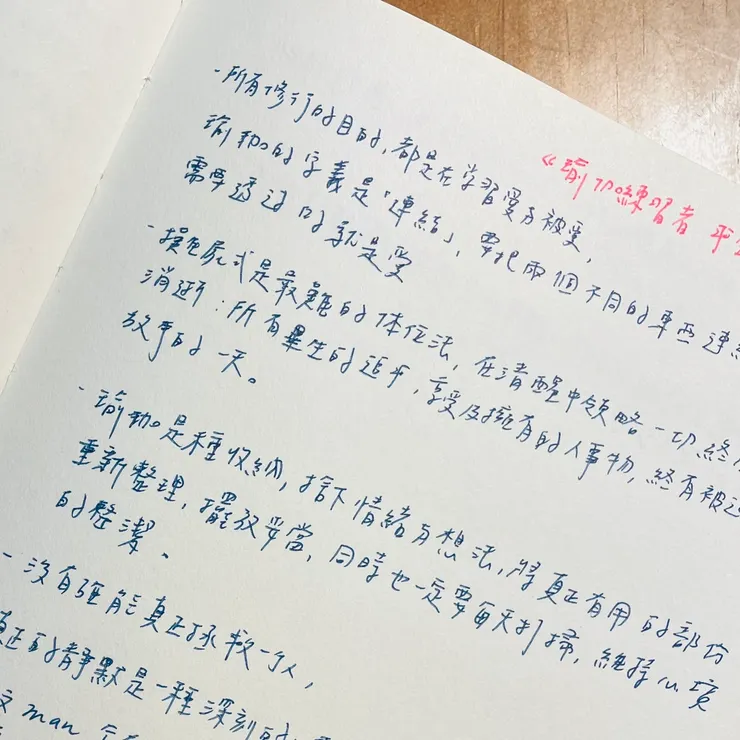 《瑜珈練習者 平
·所有修行的目的,都是在学習愛与被愛,
瑜珈的字義是「連結」,要把兩個不同的東西連結
需要透过的就是愛
·攤屍式是最難的体位法,在清醒中領略一切終
消逝:所有畢生的追求,享受及擁有的人事物,終有被
故事的一天。
·瑜珈是種收納,捨下情緒与想法,將真正有用的部份
重新整理,擺放妥當,同時也一定要每天打掃,維持心境
的整潔。
-沒有誰能真正拯救一人,
真正的靜默是一種深刻的
man